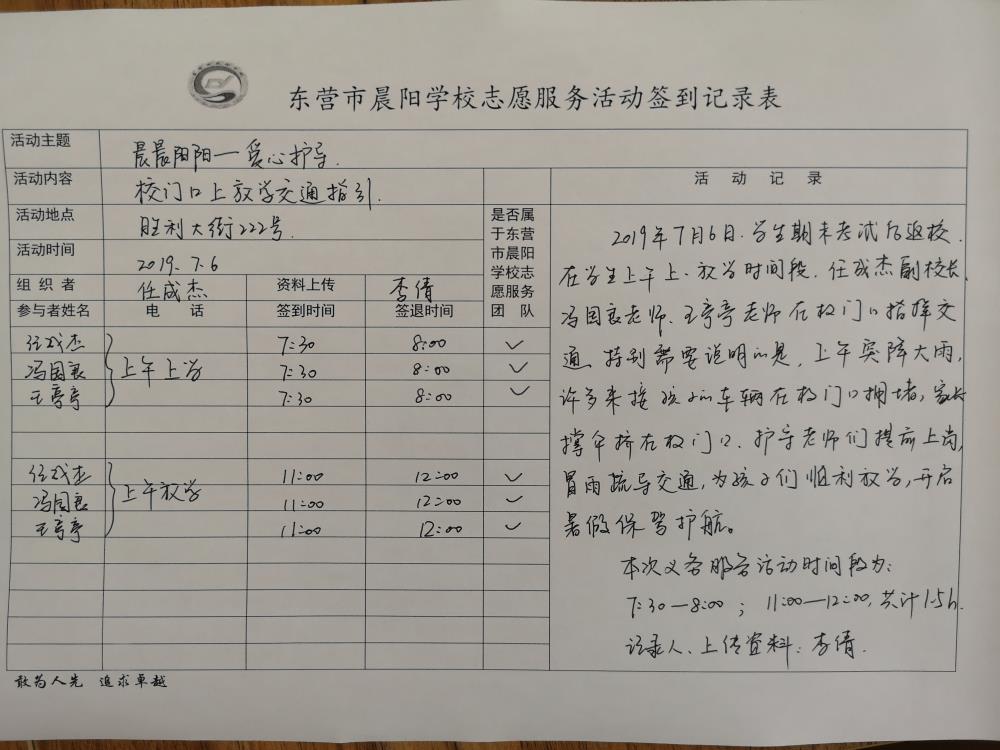 东营市晨阳学校志愿服务活动签到记录表
活动主题 晨晨阳阳一爱心护导.
活动内容 校门口上放学交通指引.
活动地点 胜利大街222号.
活动时间 2019.7.6
组织者 任成杰 资料上传 李倩
参与者姓名 电话 签到时间 签退时间 是否属于东营市晨阳学校志愿服务团队
任成杰 上午上学 7:30 8:00 ✓
冯国良 7:30 8:00 ✓
王亭亭 7:30 8:00 ✓
任成杰 上午放学 11:00 12:00 ✓
冯国良 11:00 12:00 ✓
王亭亭 11:00 12:00 ✓
活动记录
2019年7月6日.学生期末考试后返校.
在学生上午上、放学时间段.任成杰副校长、
冯国良老师、王亭亭老师在校门口指挥交
通.特别需要说明的是,上午突降大雨,
许多来接孩子的车辆在校门口拥堵,家长
撑伞挤在校门口.护导老师们提前上岗,
冒雨疏导交通,为孩子们顺利放学,开启
暑假保驾护航。
本次义务服务活动时间段为:
7:30—8:00; 11:00—12:00,共计1.5h.
记录人、上传资料:李倩.
敢为人先 追求卓越